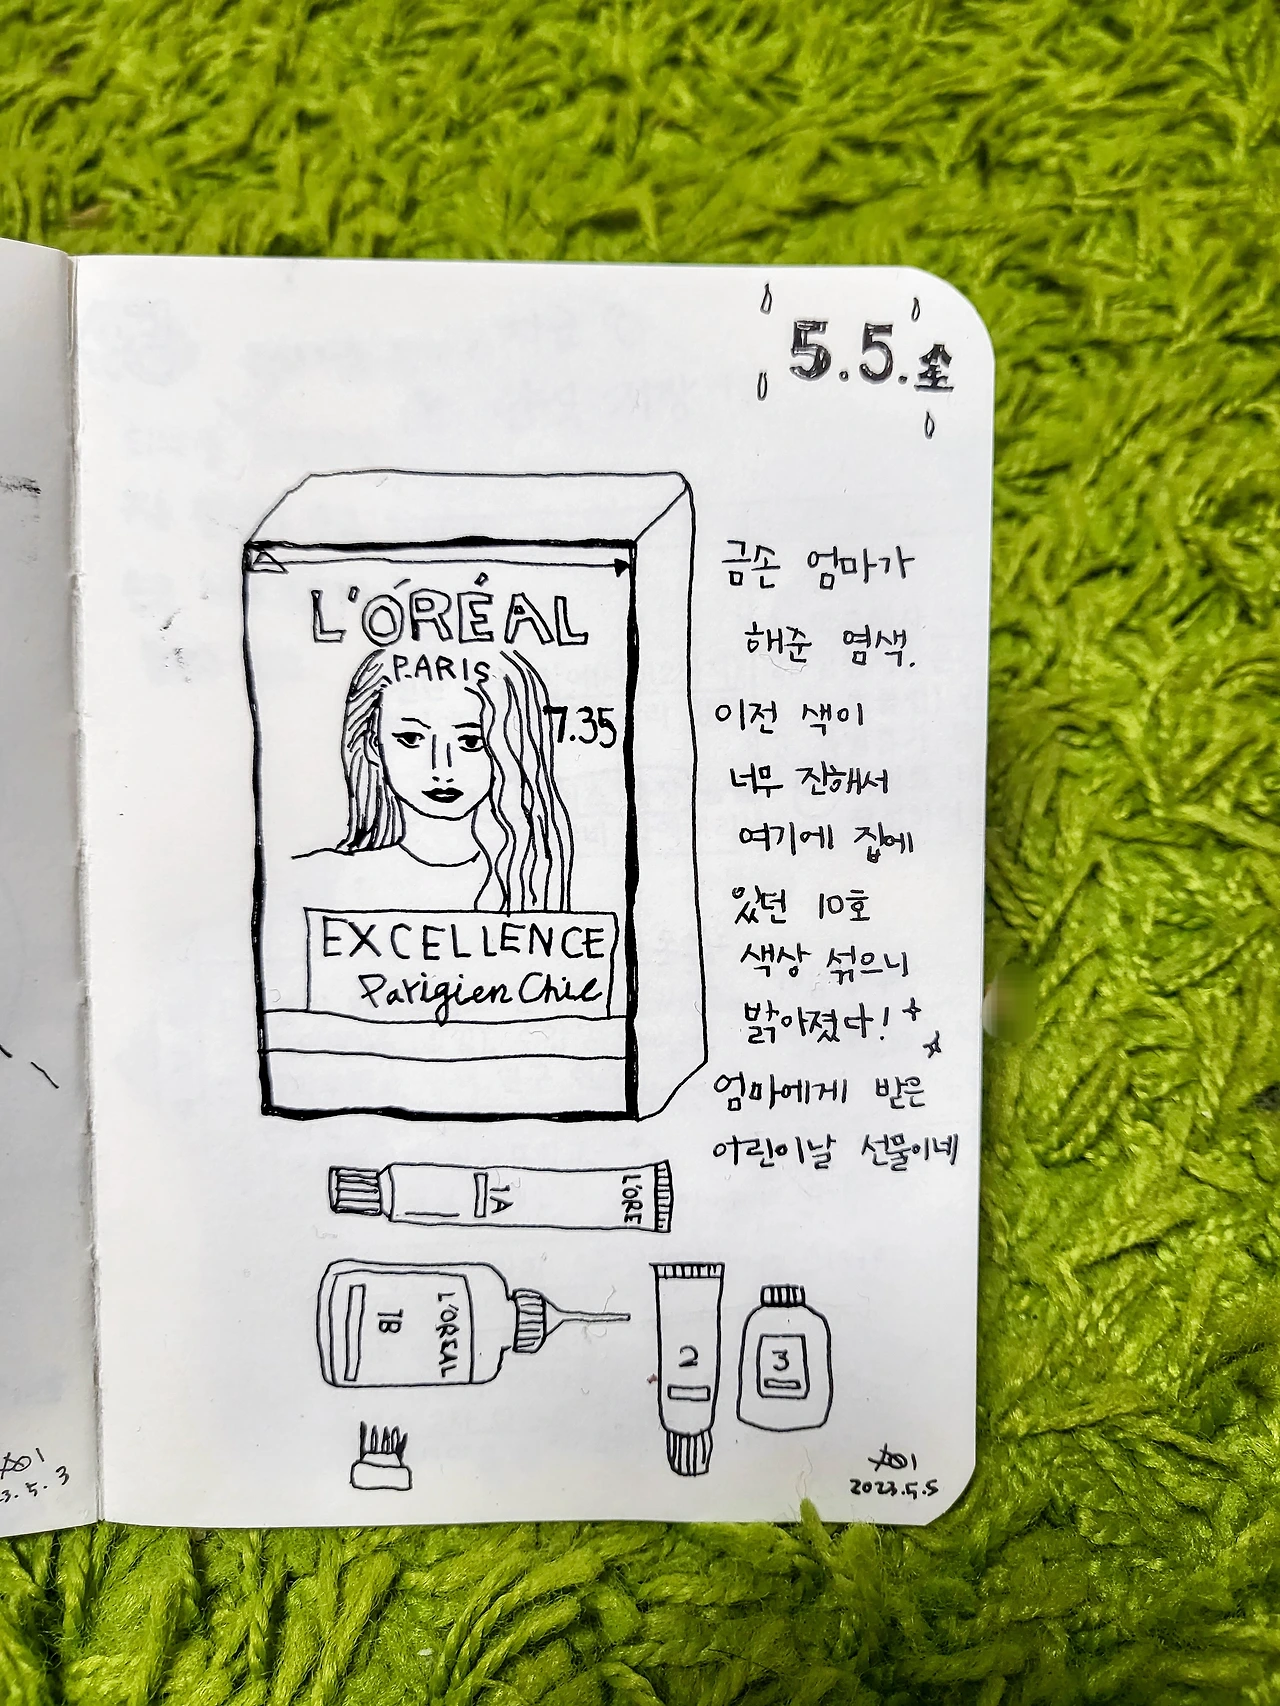 5.5.金
L'ORÉAL
PARIS
7.35
EXCELLENCE
Parigien Chic
금손 엄마가
해준 염색.
이전 색이
너무 진해서
여기에 집에
있던 10호
색상 섞으니
밝아졌다!
엄마에게 받은
어린이날 선물이네
1A
L'ORE
1B
L'OREAL
2
3
2023.5.5
3.5.3